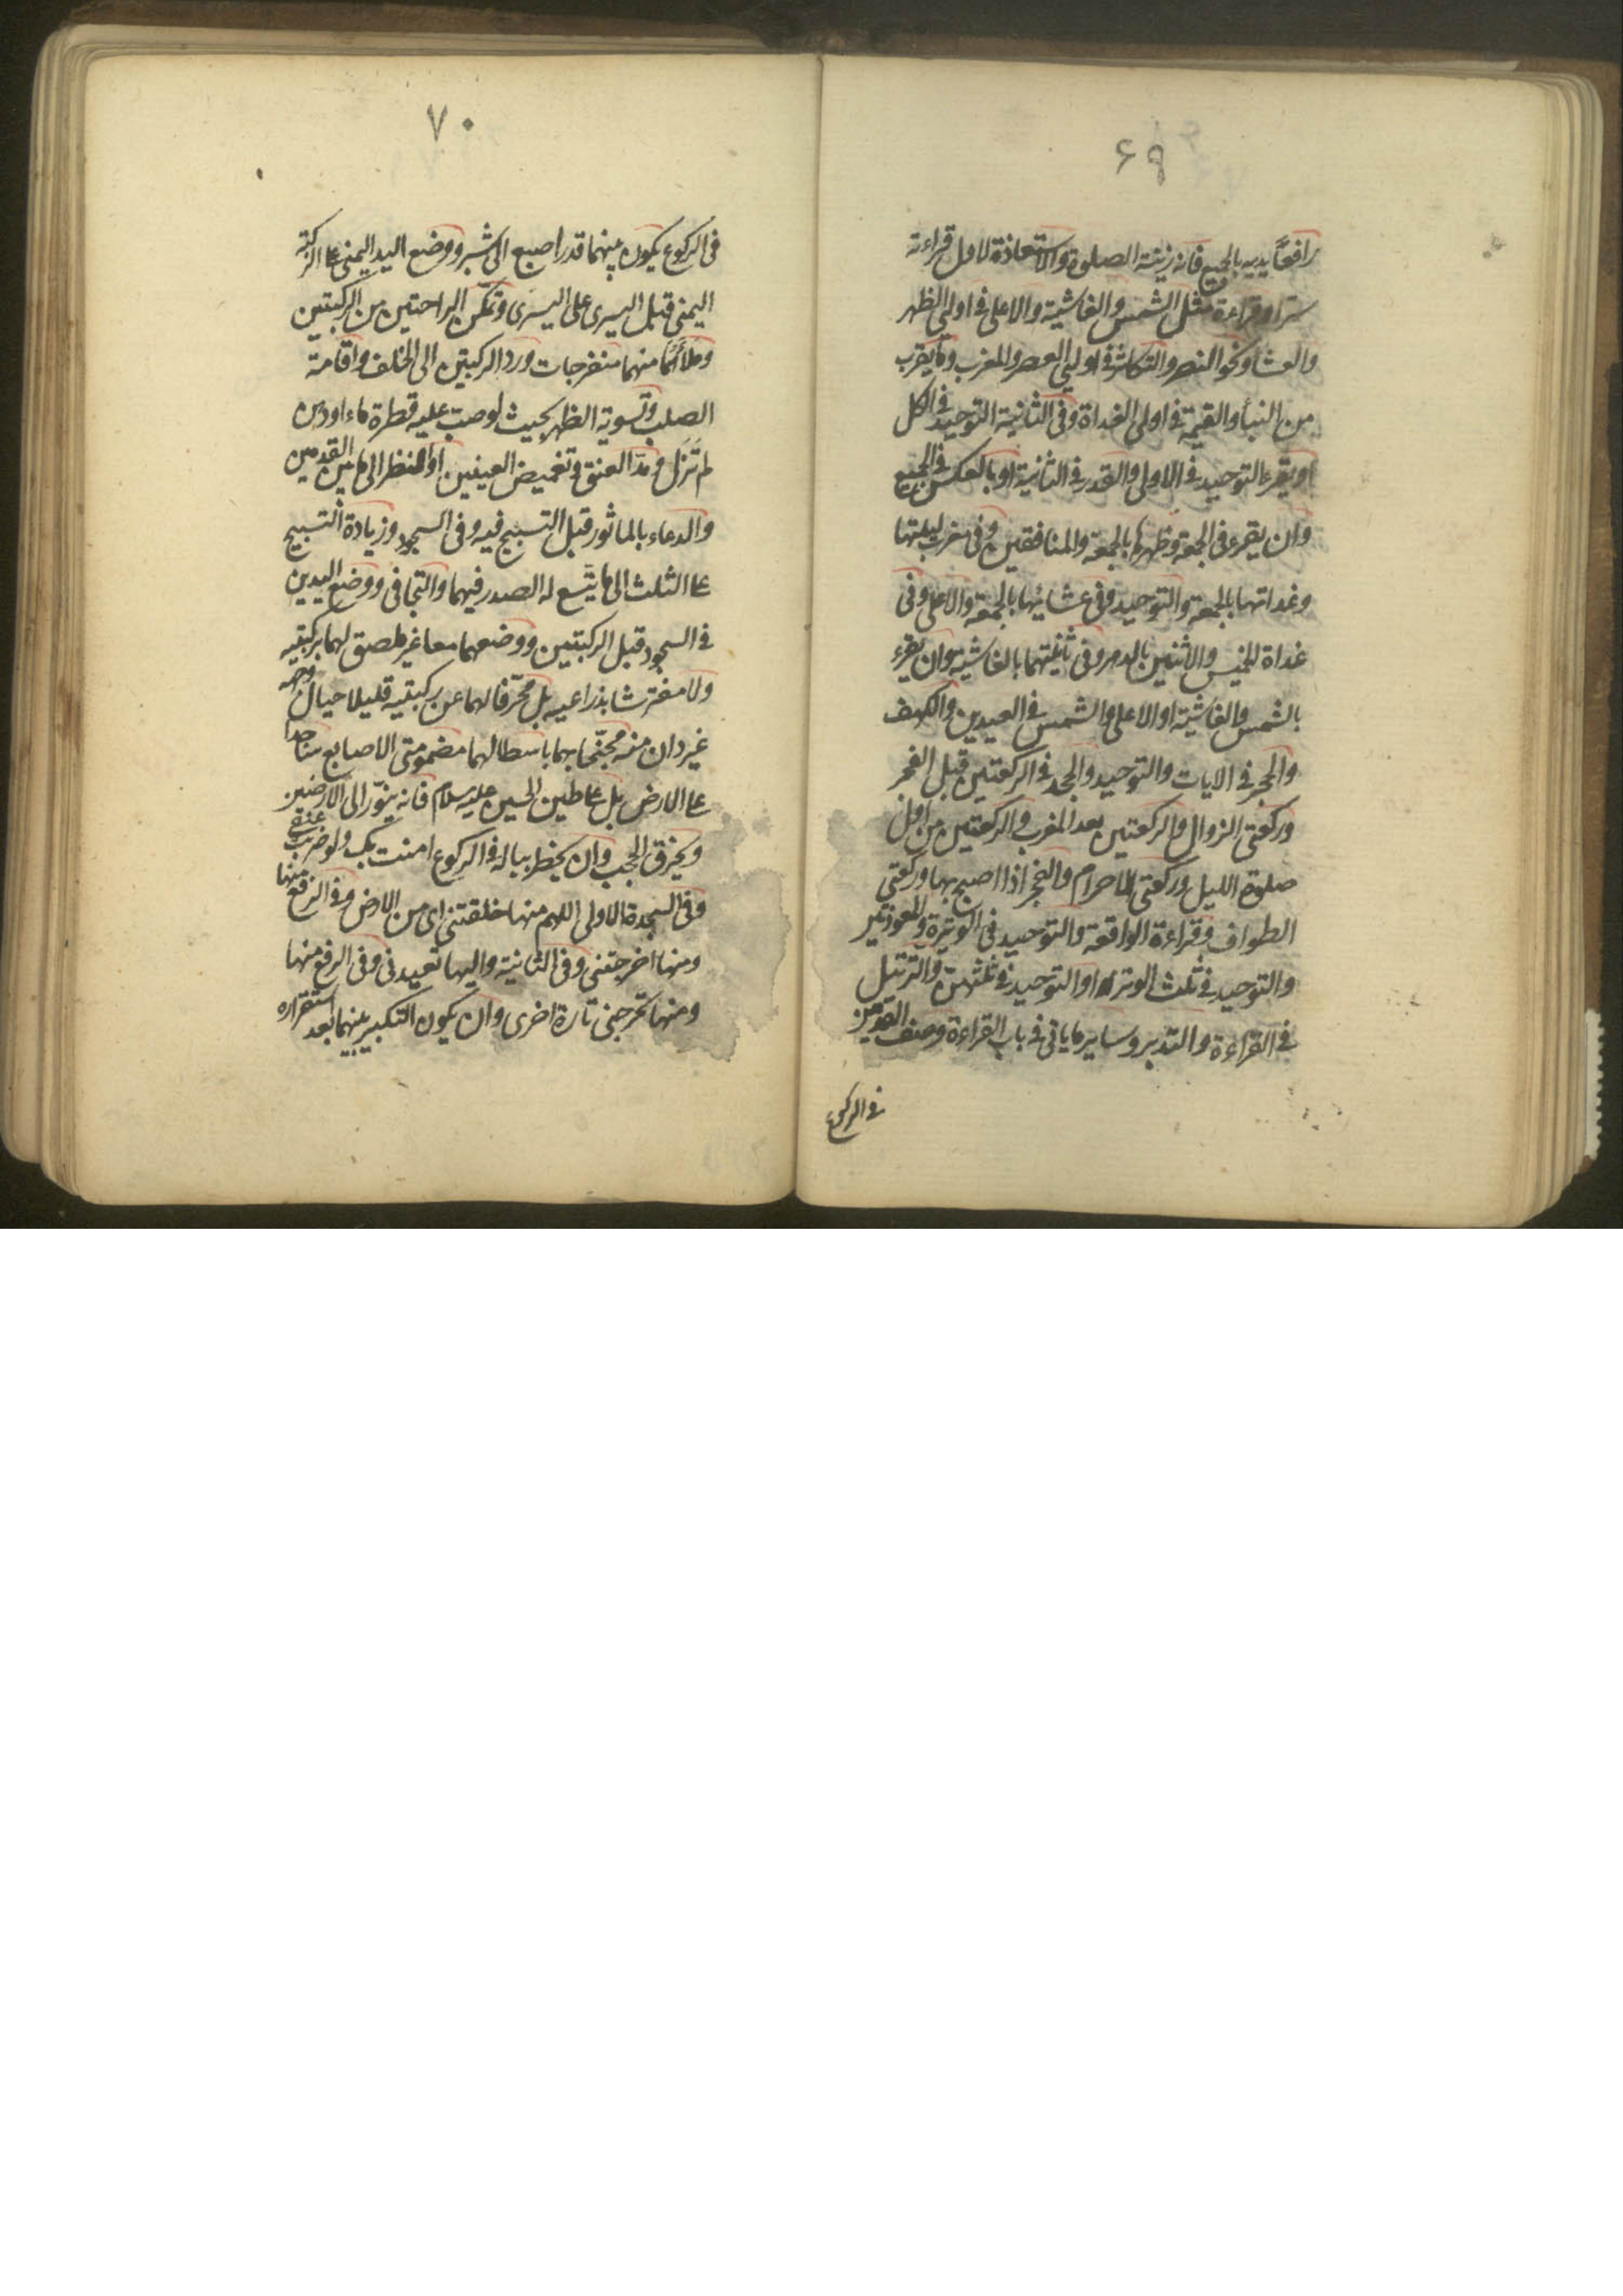 ۶۹
رافعاً يديه بالجميع فانه زينة الصلوة والاستعاذة لاول قراءته
سرّا وقراءة مثل الشمس والغاشية والاعلى في اولتي الظهر
والعشا ونحو النصر والتكاثر في اولتي العصر والمغرب وما يقرب
من النبأ والقيمة في اولى الغداة وفي الثانية التوحيد في الكل
او يقرء التوحيد في الاولى والقدر في الثانية او بالعكس في الجميع
وان يقرء في الجمعة وظهرها بالجمعة والمنافقين وفي مغرب ليلتها
وغداتها بالجمعة والتوحيد وفي عشائها بالجمعة والاعلى وفي
غداة الخميس والاثنين بالدهر وفي ثانيتهما بالغاشية وان يقرء
بالشمس والغاشية او الاعلى والشمس في العيدين والكهف
والحجر في الايات والتوحيد والجحد في الركعتين قبل الفجر
وركعتى الزوال والركعتين بعد المغرب والركعتين من اول
صلوة الليل وركعتى الاحرام والفجر اذا اصبح بها وركعتى
الطواف وقراءة الواقعة والتوحيد في الوتيرة والمعوذتين
والتوحيد في ثلث الوتر او التوحيد في ثلثهن والترتيل
في القراءة والتدبر وساير ما ياتى في باب القراءة وصف القدمين
في الركوع
۷۰
في الركوع يكون بينهما قدر اصبع الى شبر ووضع اليد اليمنى على الركبة
اليمنى قبل اليسرى على اليسرى وتمكن الراحتين من الركبتين
وملأهما منهما منفرجات ورد الركبتين الى الخلف واقامة
الصلب وتسوية الظهر بحيث لو صب عليه قطرة ماء او دهن
لم تزل ومدّ العنق وتغميض العينين او النظر الى ما بين القدمين
والدعاء بالماثور قبل التسبيح فيه وفي السجود وزيادة التسبيح
على الثلث الى ما يتّسع له الصدر فيهما والتجافى ووضع اليدين
في السجود قبل الركبتين ووضعهما معا غير ملصق لهما بركبتيه
ولا مفترشا بذراعيه بل محرّفا لهما عن ركبتيه قليلا حيال وجهه
غير دان منه مجنّحا بهما باسطا لهما مضمومتى الاصابع ساجدا
على الارض بل على طين الحسين عليه سلام فانه ينوّر الى الارضين
ويخرق الحجب وان يخطر بباله في الركوع امنت بك ولو ضربت عنقي
وفي السجدة الاولى اللهم منها خلقتنى اى من الارض وفي الرفع منها
ومنها اخرجتنى وفي الثانية واليها تعيدنى وفي الرفع منها
ومنها تخرجنى تارة اخرى وان يكون التكبير بينهما بعد استقراره